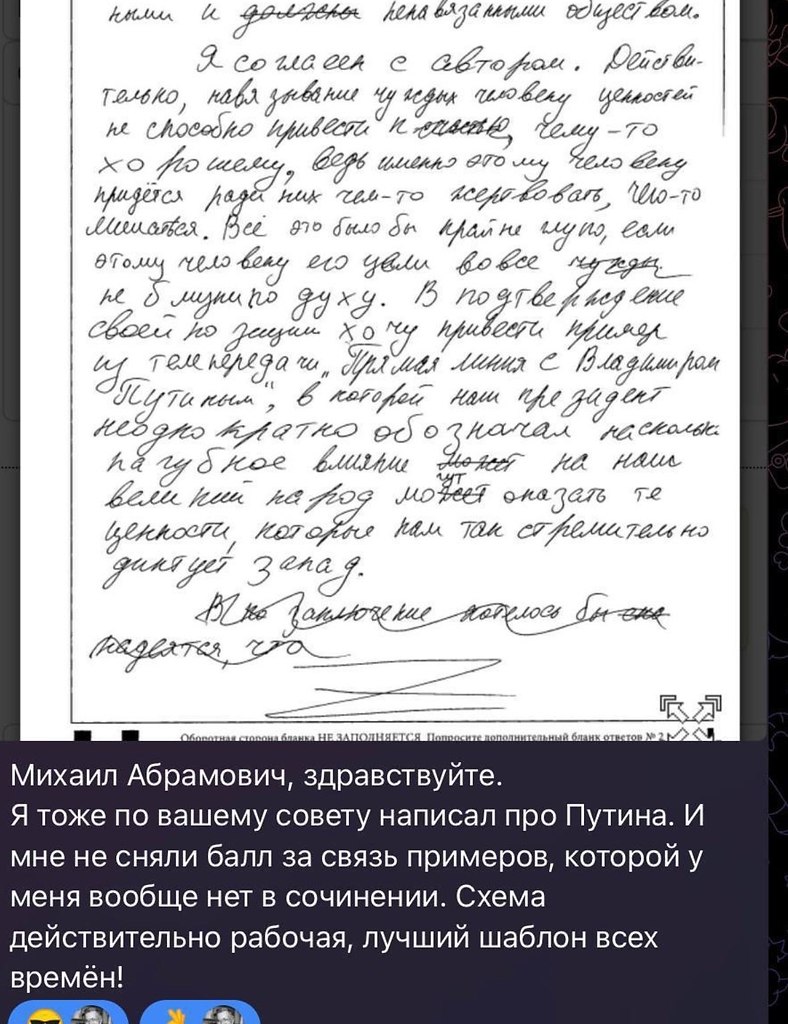 ными и должны ненавязанными обществом.
Я согласен с автором. Действи-
тельно, навязывание чуждых человеку ценностей
не способно привести к счастью, чему-то
хорошему, ведь именно этому человеку
придётся ради них чем-то жертвовать, чего-то
лишаться. Всё это было бы крайне глупо, если
этому человеку его цели вовсе чужды
не близки по духу. В подтверждение
своей позиции хочу привести пример
из телепередачи „Прямая линия с Владимиром
Путиным“, в которой наш президент
неоднократно обозначал насколько
пагубное влияние может на наш
великий народ могут оказать те
ценности, которые нам так стремительно
диктует запад.
В заключение хотелось бы
надеятся, что
Оборотная сторона бланка НЕ ЗАПОЛНЯЕТСЯ. Попросите дополнительный бланк ответов № 2
Михаил Абрамович, здравствуйте.
Я тоже по вашему совету написал про Путина. И
мне не сняли балл за связь примеров, которой у
меня вообще нет в сочинении. Схема
действительно рабочая, лучший шаблон всех
времён!